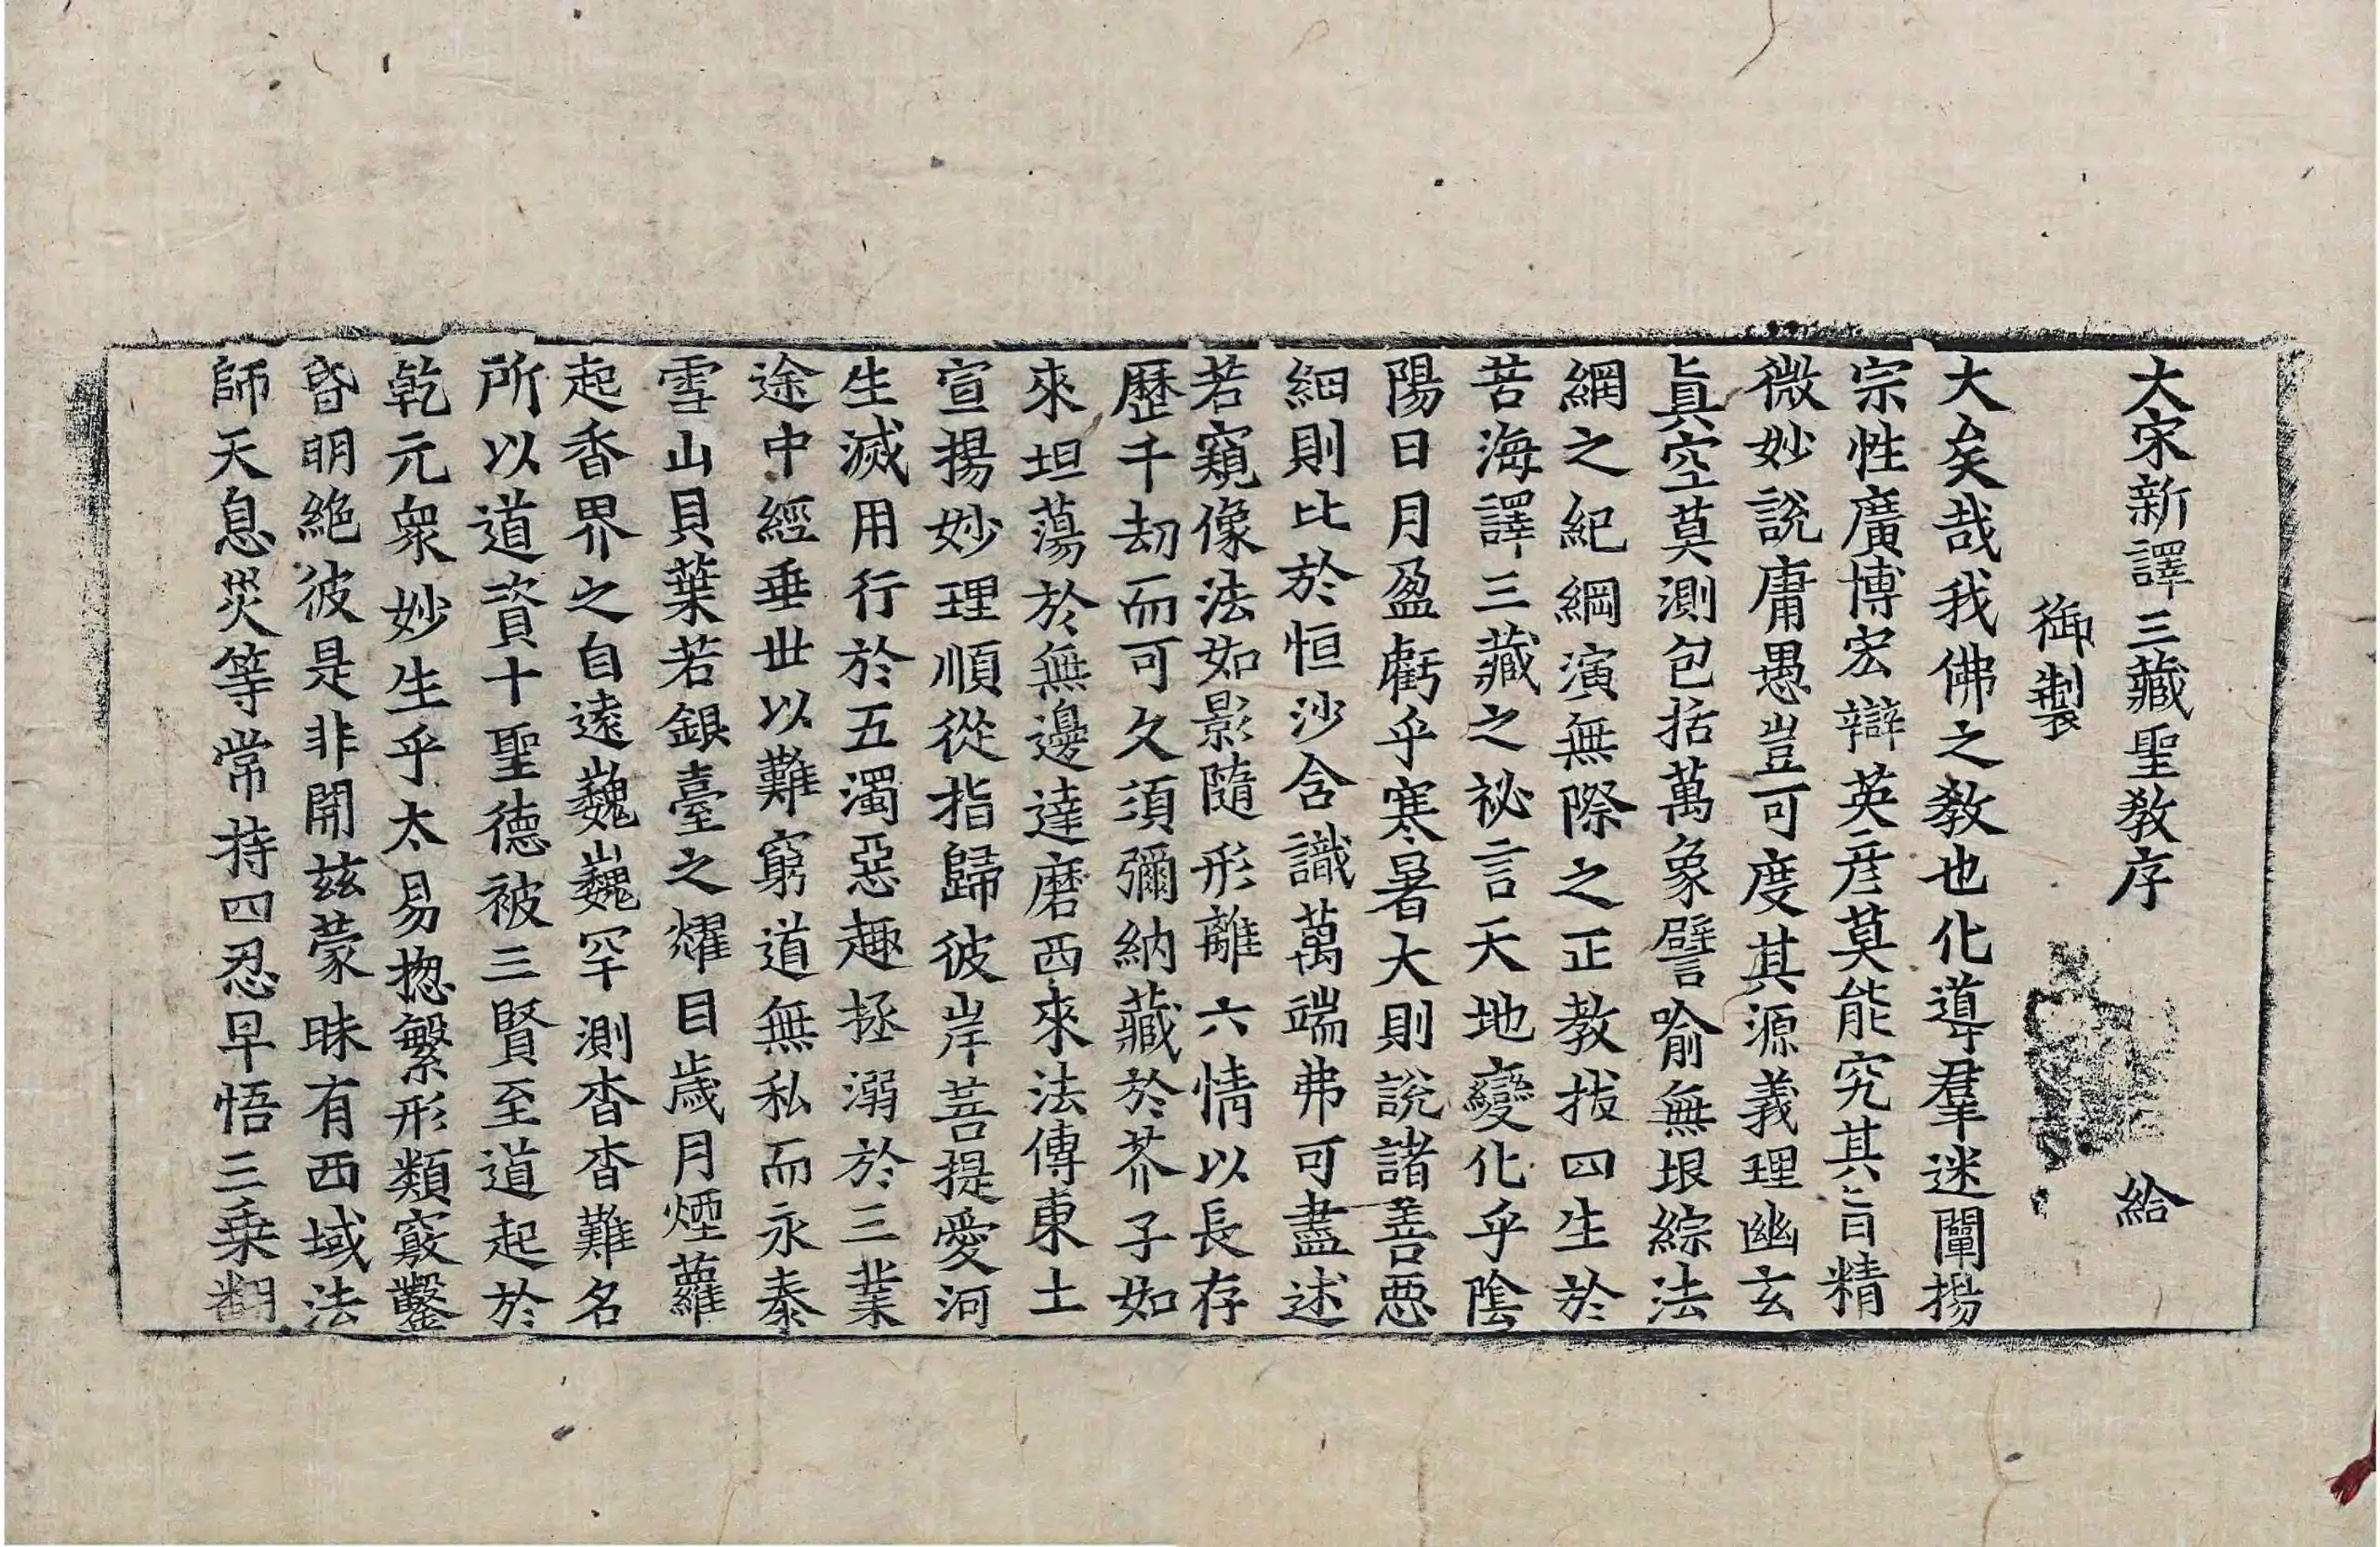 大宋新譯三藏聖敎序 給
御製
大矣哉我佛之敎也化導羣迷闡揚
宗性廣博宏辯英彦莫能究其旨精
微妙說庸愚豈可度其源義理幽玄
眞空莫測包括萬象譬喻無垠綜法
網之紀綱演無際之正教拔四生於
苦海譯三藏之祕言天地變化乎陰
陽日月盈虧乎寒暑大則說諸善惡
細則比於恒沙含識萬端弗可盡述
若窺像法如影隨形離六情以長存
歷千劫而可久須彌納藏於芥子如
來坦蕩於無邊達磨西來法傳東土
宣揚妙理順從指歸彼岸菩提愛河
生滅用行於五濁惡趣拯溺於三業
途中經垂世以難窮道無私而永泰
雪山貝葉若銀臺之耀目歲月煙蘿
起香界之自遠巍巍罕測杳杳難名
所以道資十聖德被三賢至道起於
乾元衆妙生乎太易揔繫形類竅鑿
昏明絶彼是非開茲蒙昧有西域法
師天息災等常持四忍早悟三乗翻